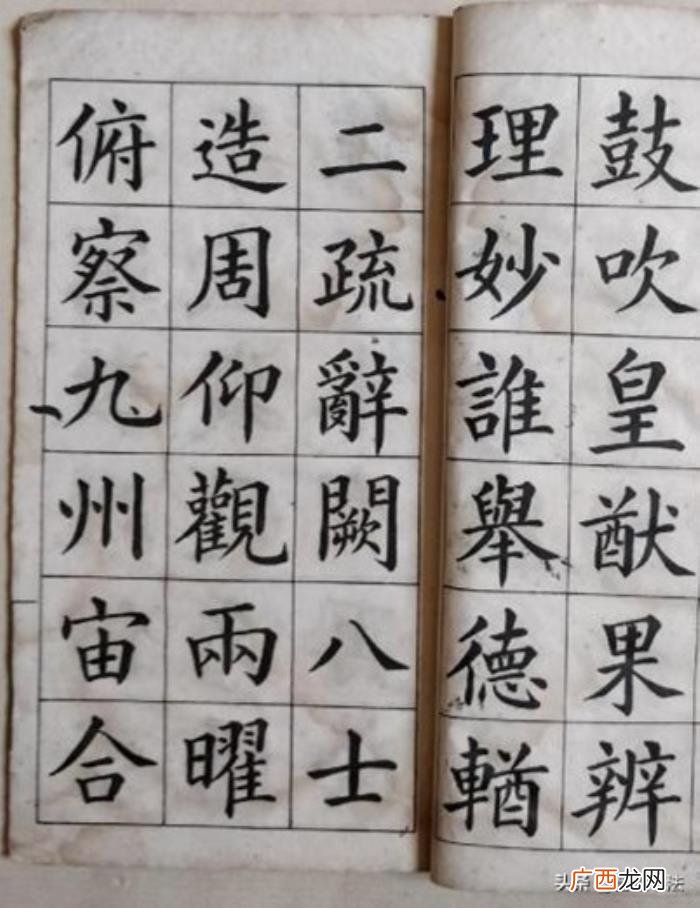 鼓吹皇猷果辨
理妙誰舉德輶
二疏辭闕八士
造周仰觀兩曜
俯察九州宙合
头条
法
广西龙网